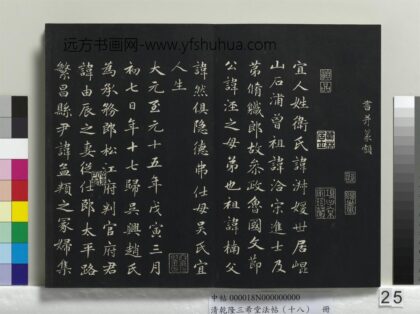 远方书画网-www.yfshuhua.com
書并篆額
宜人姓衛氏諱淑媛世居崐
山石浦曾祖諱洽宋進士及
第脩職郎故參政魯國文節
公諱涇之母弟也祖諱楠父
諱然俱隱德弗仕母吳氏宜
人生
大元至元十五年戊寅三月
初七日年十七歸吳興趙氏
為承務郎松江府判官府君
諱由辰之妻從仕郎太平路
繁昌縣尹諱孟頖之冢婦集
25
中帖 000018N000000000
清乾隆三希堂法帖（十八） 冊